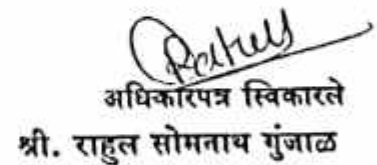 Rahul
अधिकारपत्र स्विकारले
श्री. राहुल सोमनाथ गुंजाळ